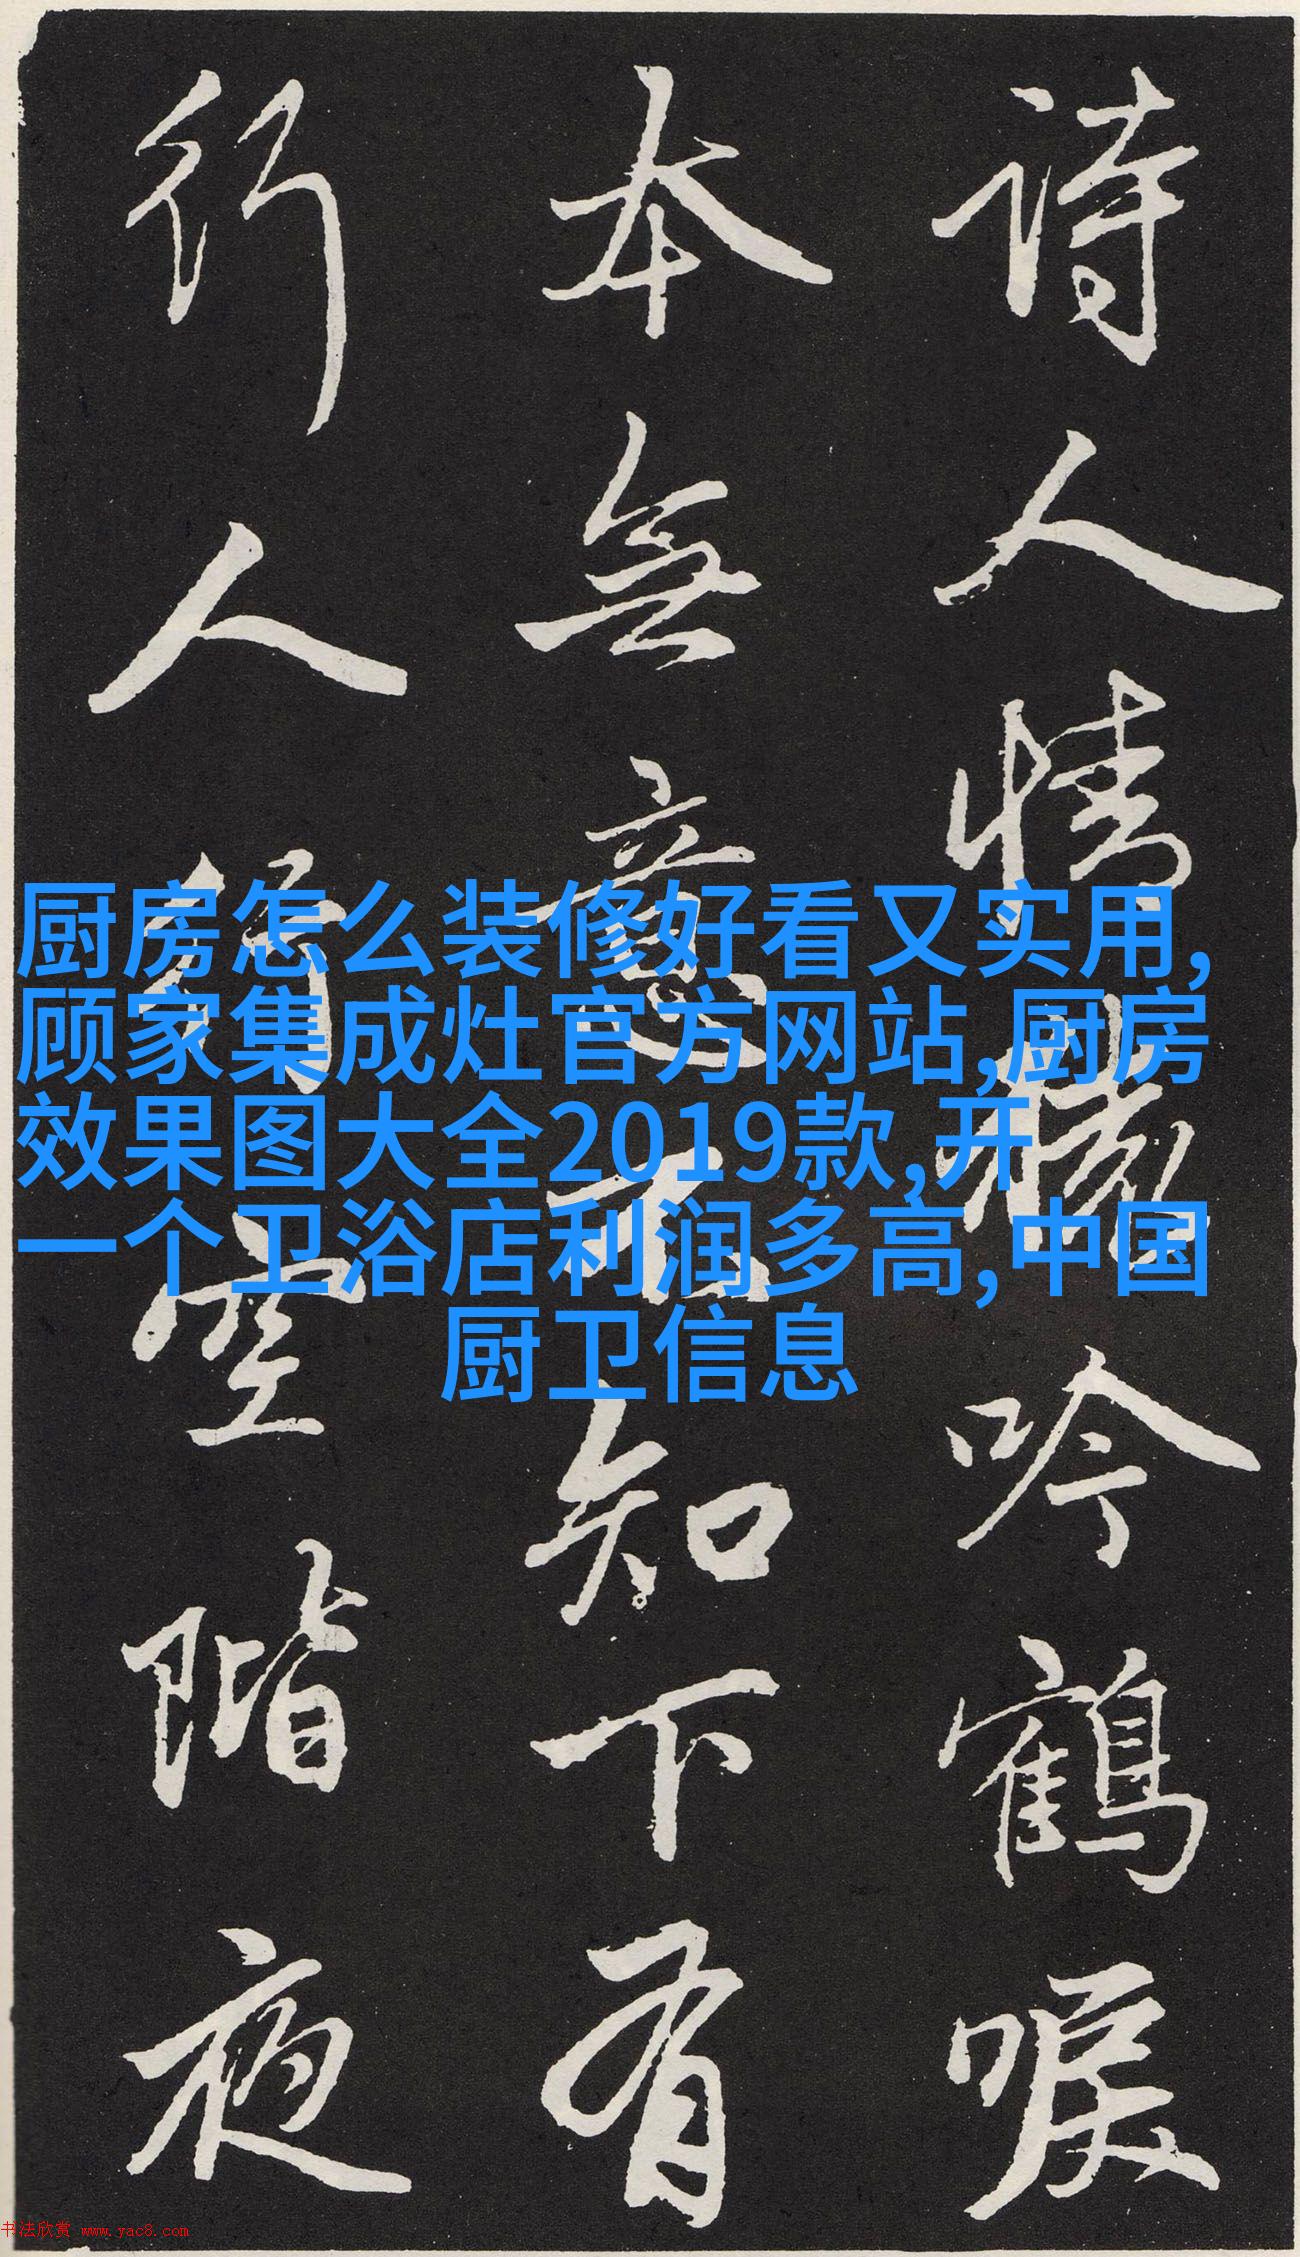 詩人情猿吟鶴唳
本無意不知下有
行人行空階夜
厨房怎么装修好看又实用,
顾家集成灶官方网站,厨房
效果图大全2019款,开
一个卫浴店利润多高,中国
厨卫信息
书法欣赏 www.yac8.com